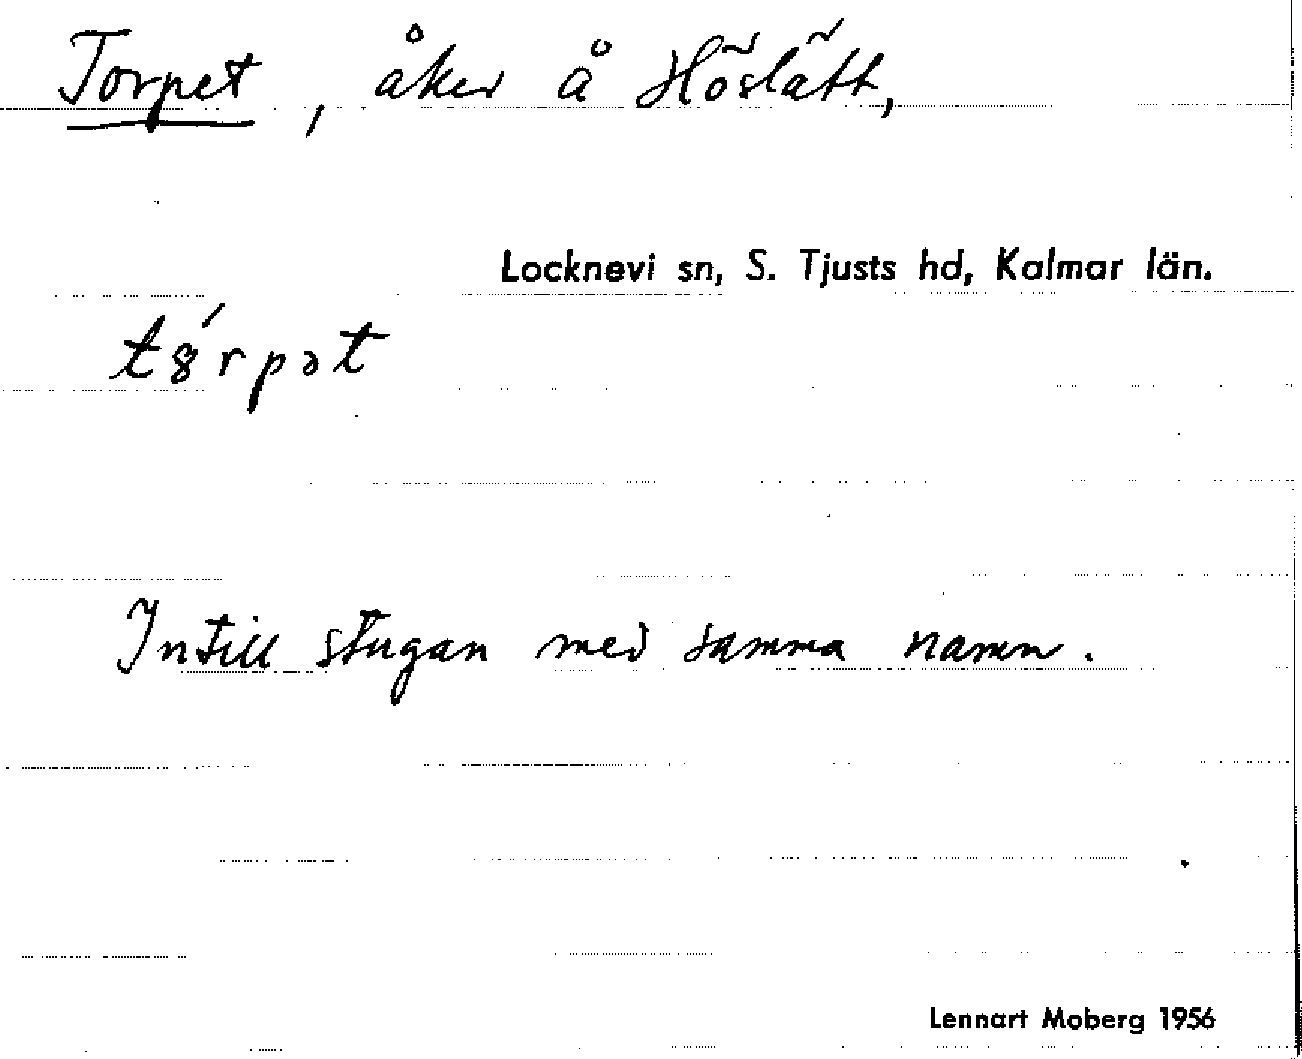 Torpet, åker å Höslätt,
Locknevi sn, S. Tjusts hd, Kalmar län.
t8́rpət
Intill stugan med samma namn.
Lennart Moberg 1956